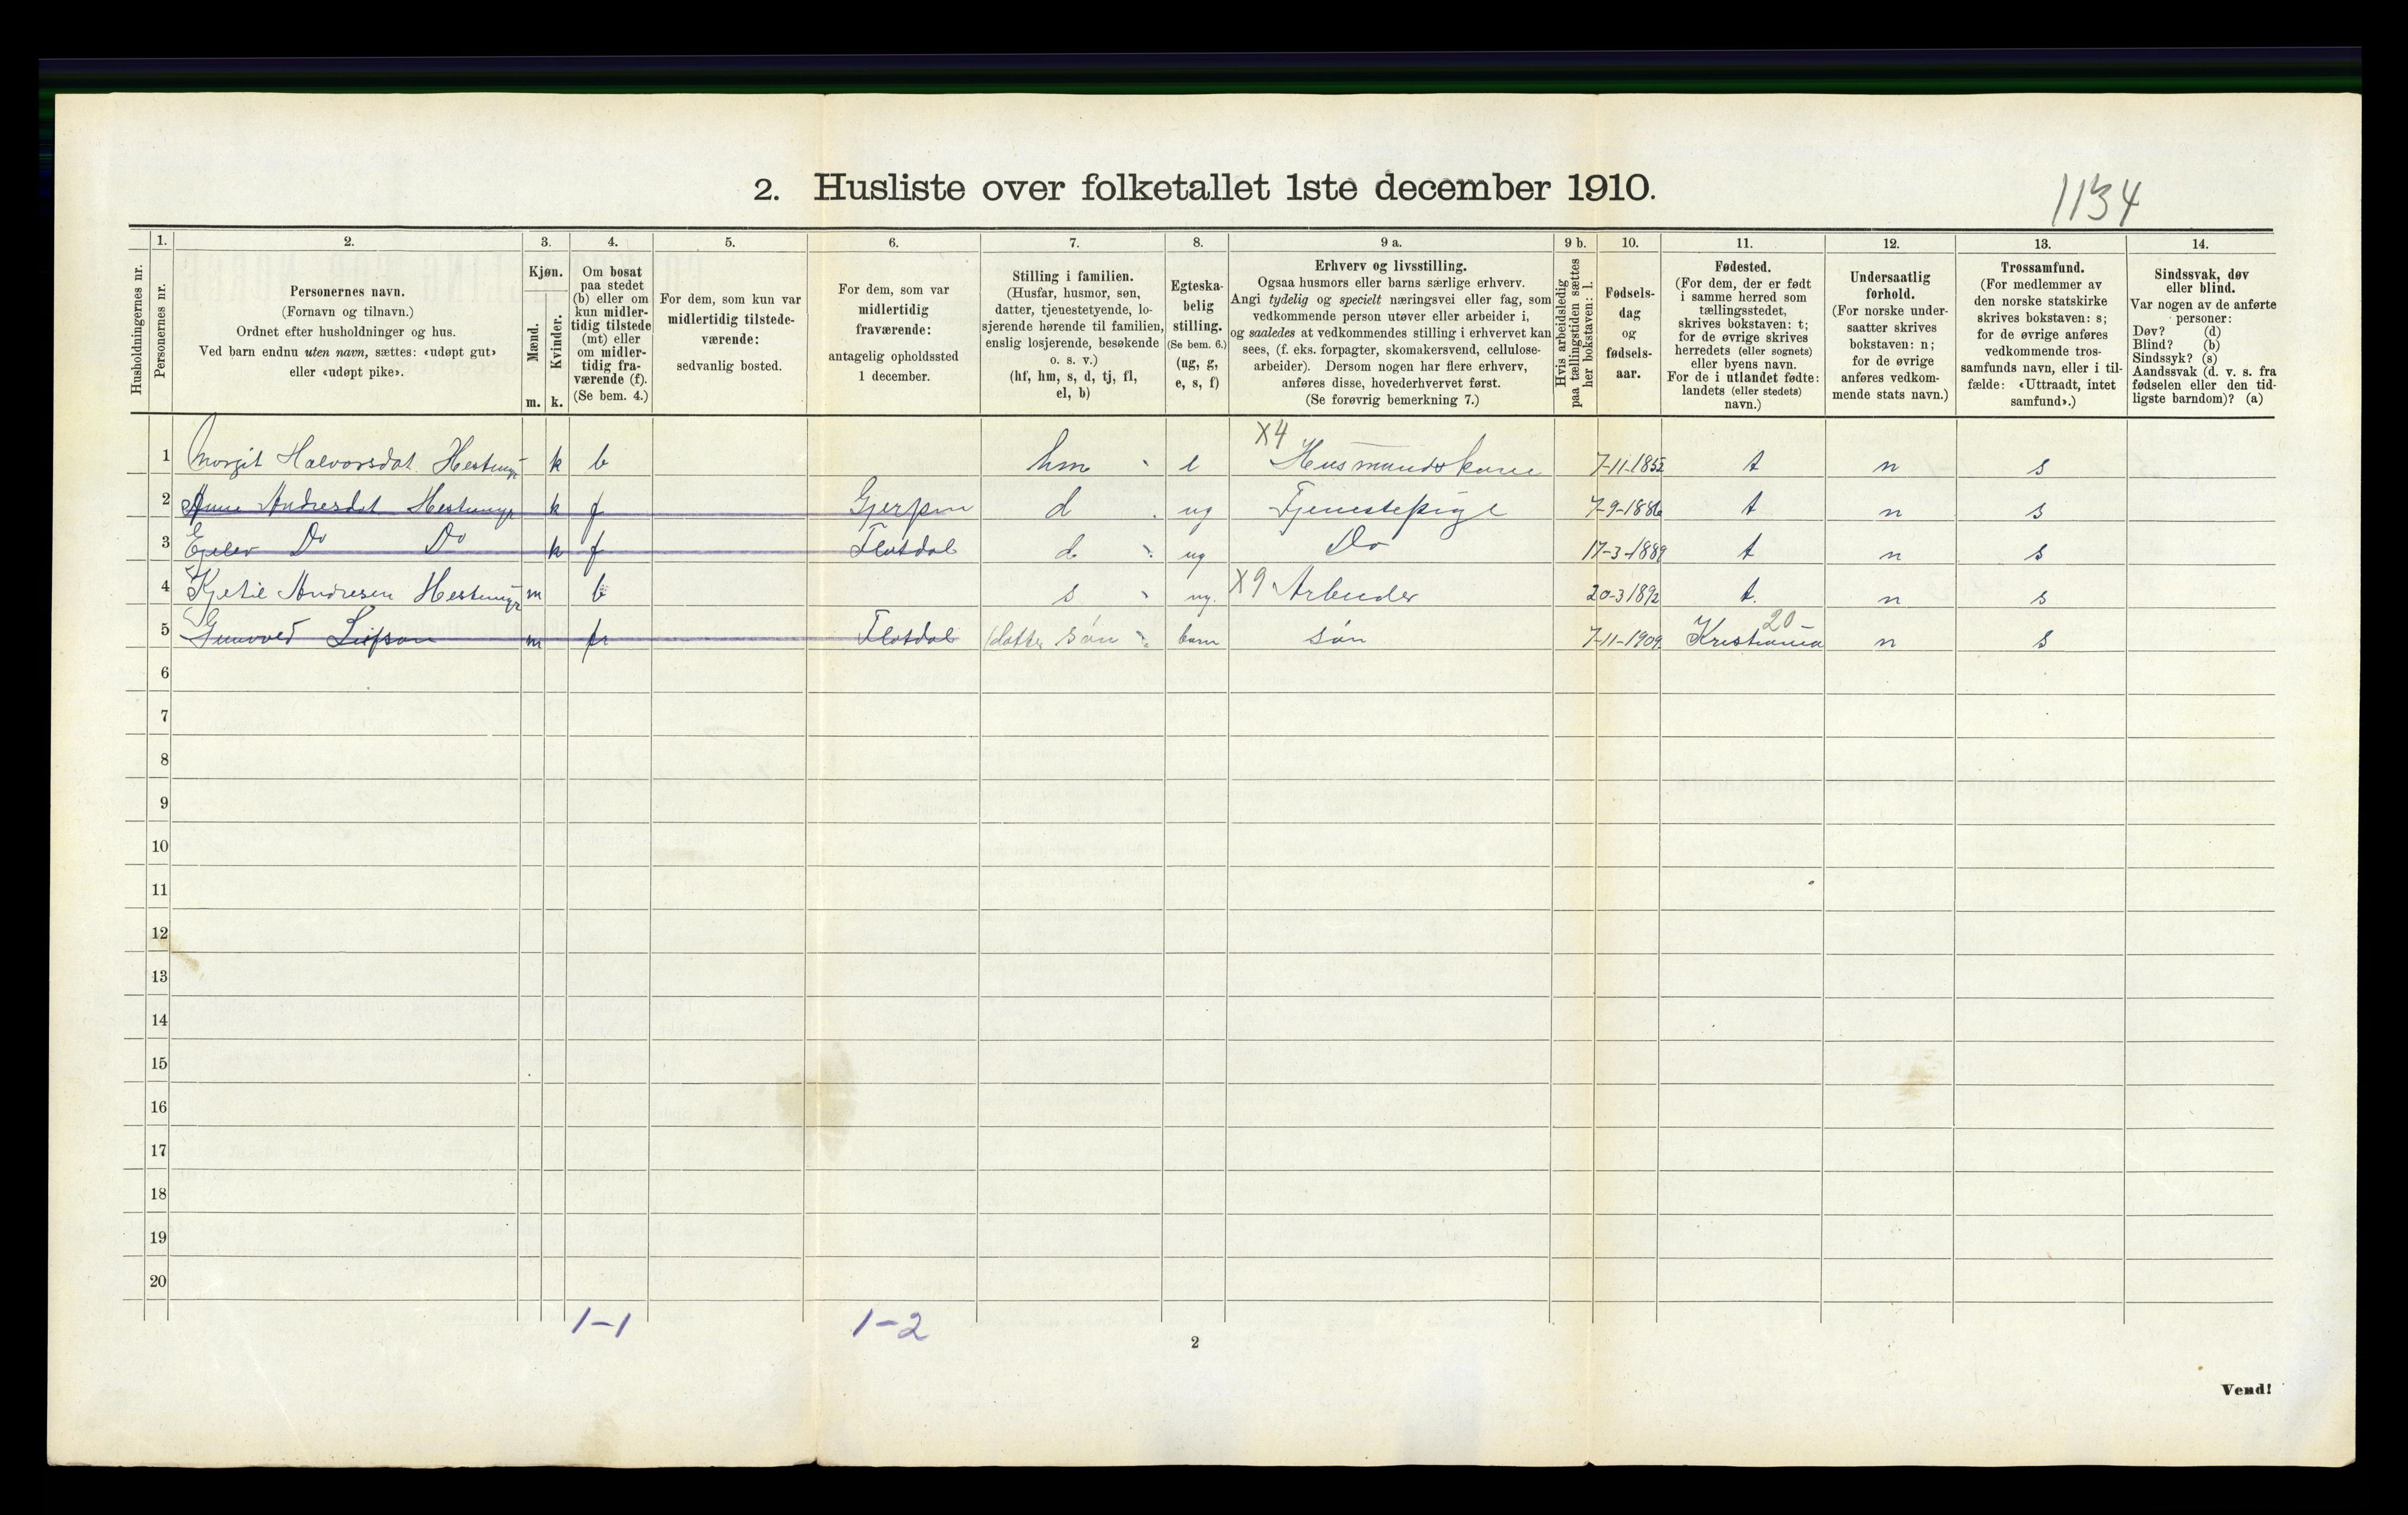 2. Husliste over folketallet 1ste december 1910.
1134
Husholdningernes nr.
1. Personernes nr.
2. Personernes navn. (Fornavn og tilnavn.) Ordnet efter husholdninger og hus. Ved barn endnu uten navn, sættes: «udøpt gut» eller «udøpt pike».
3. Kjøn. Mænd. m. Kvinder. k.
4. Om bosat paa stedet (b) eller om kun midlertidig tilstede (mt) eller om midlertidig fraværende (f). (Se bem. 4.)
5. For dem, som kun var midlertidig tilstedeværende: sedvanlig bosted.
6. For dem, som var midlertidig fraværende: antagelig opholdssted 1 december.
7. Stilling i familien. (Husfar, husmor, søn, datter, tjenestetyende, losjerende hørende til familien, enslig losjerende, besøkende o. s. v.) (hf, hm, s, d, tj, fl, el, b)
8. Egteskabelig stilling. (Se bem. 6.) (ug, g, e, s, f)
9 a. Erhverv og livsstilling. Ogsaa husmors eller barns særlige erhverv. Angi tydelig og specielt næringsvei eller fag, som vedkommende person utøver eller arbeider i, og saaledes at vedkommendes stilling i erhvervet kan sees, (f. eks. forpagter, skomakersvend, cellulosearbeider). Dersom nogen har flere erhverv, anføres disse, hovederhvervet først. (Se forøvrig bemerkning 7.)
9 b. Hvis arbeidsledig paa tællingstiden sættes her bokstaven: l.
10. Fødselsdag og fødselsaar.
11. Fødested. (For dem, der er født i samme herred som tællingsstedet, skrives bokstaven: t; for de øvrige skrives herredets (eller sognets) eller byens navn. For de i utlandet fødte: landets (eller stedets) navn.)
12. Undersaatlig forhold. (For norske undersaatter skrives bokstaven: n; for de øvrige anføres vedkommende stats navn.)
13. Trossamfund. (For medlemmer av den norske statskirke skrives bokstaven: s; for de øvrige anføres vedkommende trossamfunds navn, eller i tilfælde: «Uttraadt, intet samfund».)
14. Sindssvak, døv eller blind. Var nogen av de anførte personer: Døv? (d) Blind? (b) Sindssyk? (s) Aandssvak (d. v. s. fra fødselen eller den tidligste barndom)? (a)
1 Margit Halvorsdat. Hestmyr k b hm e X4 Husmandskone 7-11-1852 t n s
2 Anne Andresdat Hestmyr k f Gjerpen d ug Tjenestepige 7-9-1886 t n s
3 Do Do k f Flatdal d ug Do 17-3-1889 t n s
4 Kjetil Andresen Hestmyr m b s ug. X9 Arbeider 20-3 1892 t. n s
5 m f Flatdal (datter søn barn søn 7-11-1909 Kristiania 20 n s
6
7
8
9
10
11
12
13
14
15
16
17
18
19
20
1-1 1-2
2
Vend!